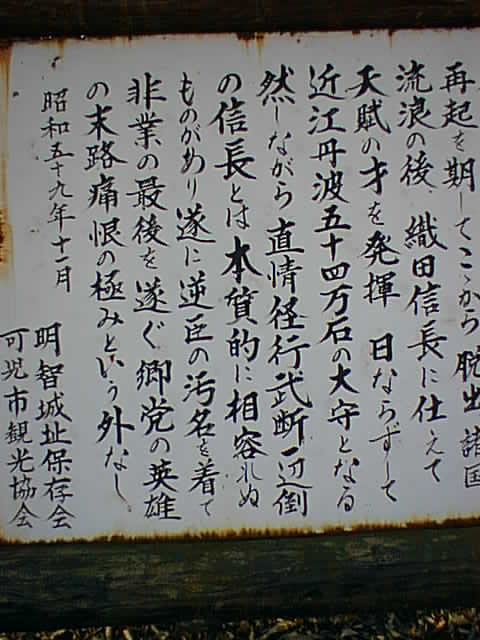 再起を期してこゝから脱出 諸国
流浪の後 織田信長に仕えて
天賦の才を発揮 日ならずして
近江丹波五十四万石の大守となる
然しながら 直情径行武断一辺倒
の信長とは本質的に相容れぬ
ものがあり遂に逆臣の汚名を着て
非業の最後を遂ぐ 郷党の英雄
の末路痛恨の極みという外なし
昭和五十九年十一月
明智城址保存会
可児市観光協会